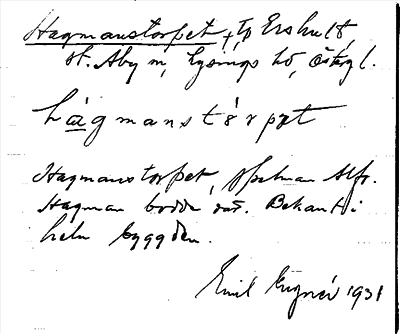 Hagmanstorpet, tp Erskult,
st. Åby sn, Lysings hd, Östergl.
hágmanstǿrpət
Hagmanstorpet, spelman Alfr.
Hagman bodde där. Bekant i
hela byggden.
Emil 1931